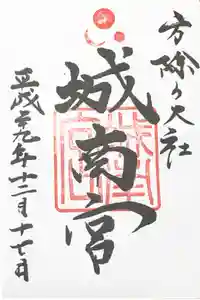 方除の大社
城南宮
平成二十九年十二月十七日